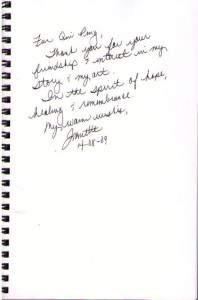 For
Thank you for your
friendship & interest in my
story & my art.
In the spirit of hope,
healing & remembrance.
My warm wishes,
4-08-09